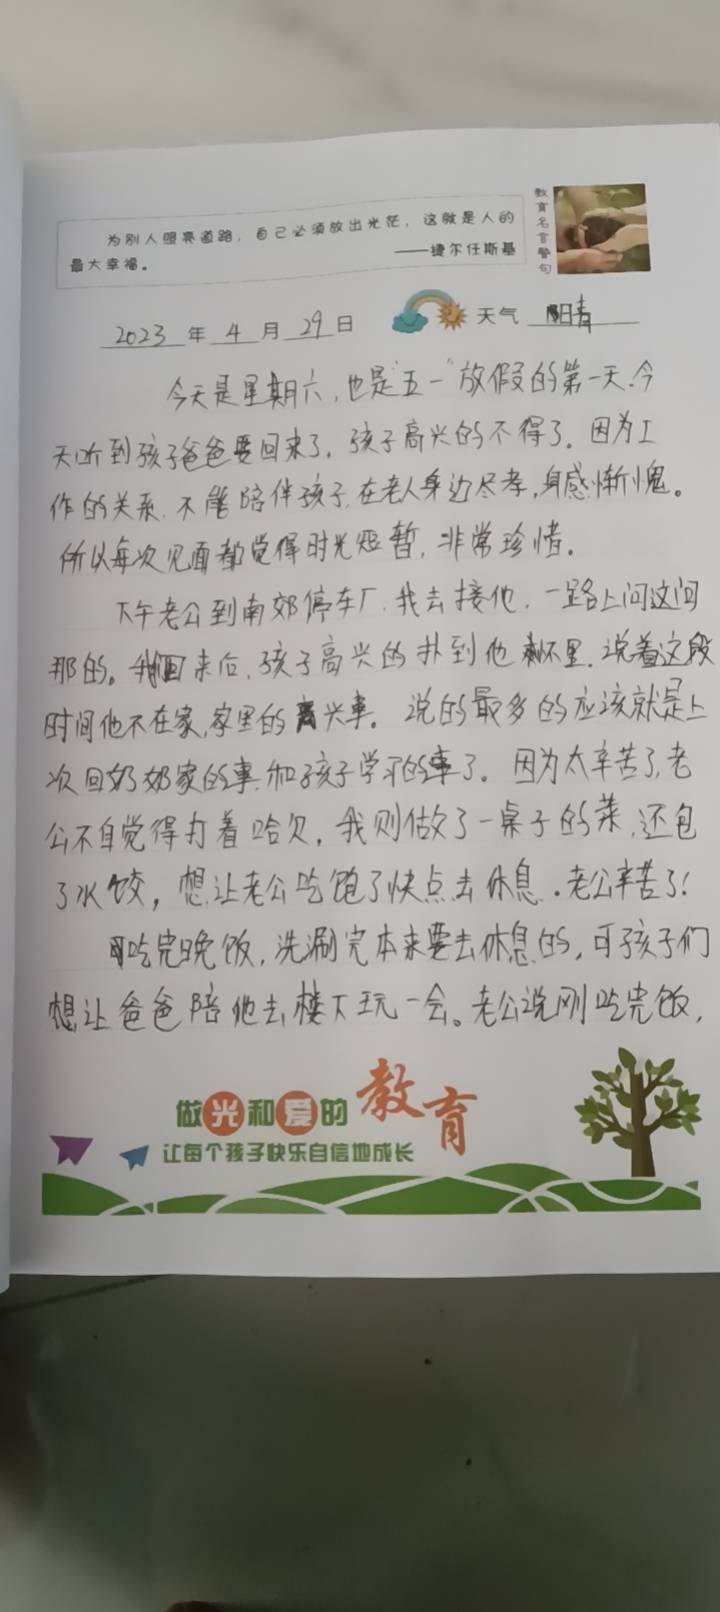 为别人照亮道路，自己必须放出光茫，这就是人的
最大幸福。
——捷尔任斯基
教育名言警句
2023 年 4 月 29 日
天气 晴
今天是星期六，也是“五一”放假的第一天.今
天听到孩子爸爸要回来了，孩子高兴的不得了。因为工
作的关系.不能陪伴孩子.在老人身边尽孝，身感惭愧。
所以每次见面都觉得时光短暂，非常珍惜。
下午老公到南郊停车厂.我去接他.一路上问这问
那的。回来后，孩子高兴的扑到他怀里.说着这段
时间他不在家,家里的高兴事。说的最多的应该就是上
次回奶奶家的事.和孩子学习的事了。因为太辛苦了,老
公不自觉得打着哈欠，我则做了一桌子的菜,还包
了水饺，想让老公吃饱了快点去休息.老公辛苦了!
吃完晚饭，洗涮完本来要去休息的，可孩子们
想让爸爸陪他去楼下玩一会。老公说刚吃完饭，
做光和爱的教育
让每个孩子快乐自信地成长